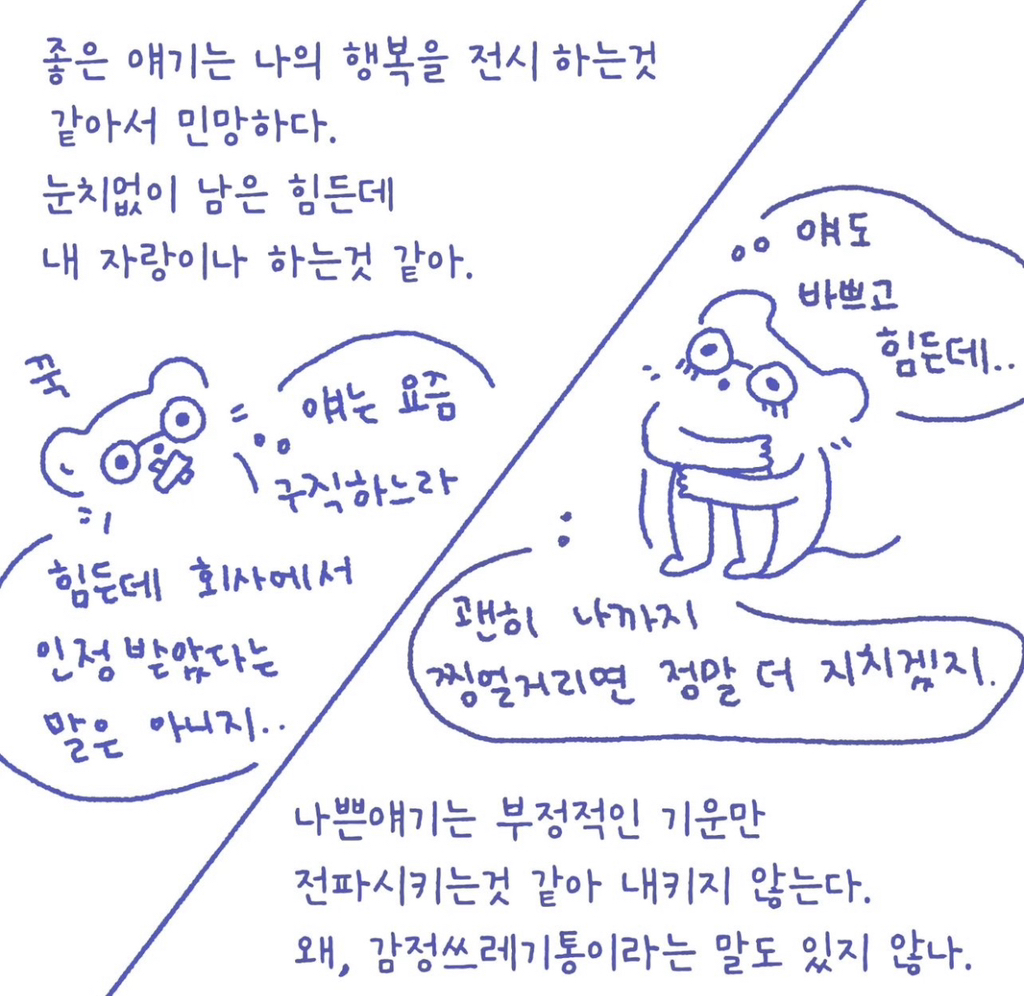 좋은 얘기는 나의 행복을 전시 하는것
같아서 민망하다.
눈치없이 남은 힘든데
내 자랑이나 하는것 같아.
꾹
얘는 요즘
구직하느라
힘든데 회사에서
인정 받았다는
말은 아니지..
얘도
바쁘고
힘든데..
괜히 나까지
찡얼거리면 정말 더 지치겠지.
나쁜얘기는 부정적인 기운만
전파시키는것 같아 내키지 않는다.
왜, 감정쓰레기통이라는 말도 있지 않나.